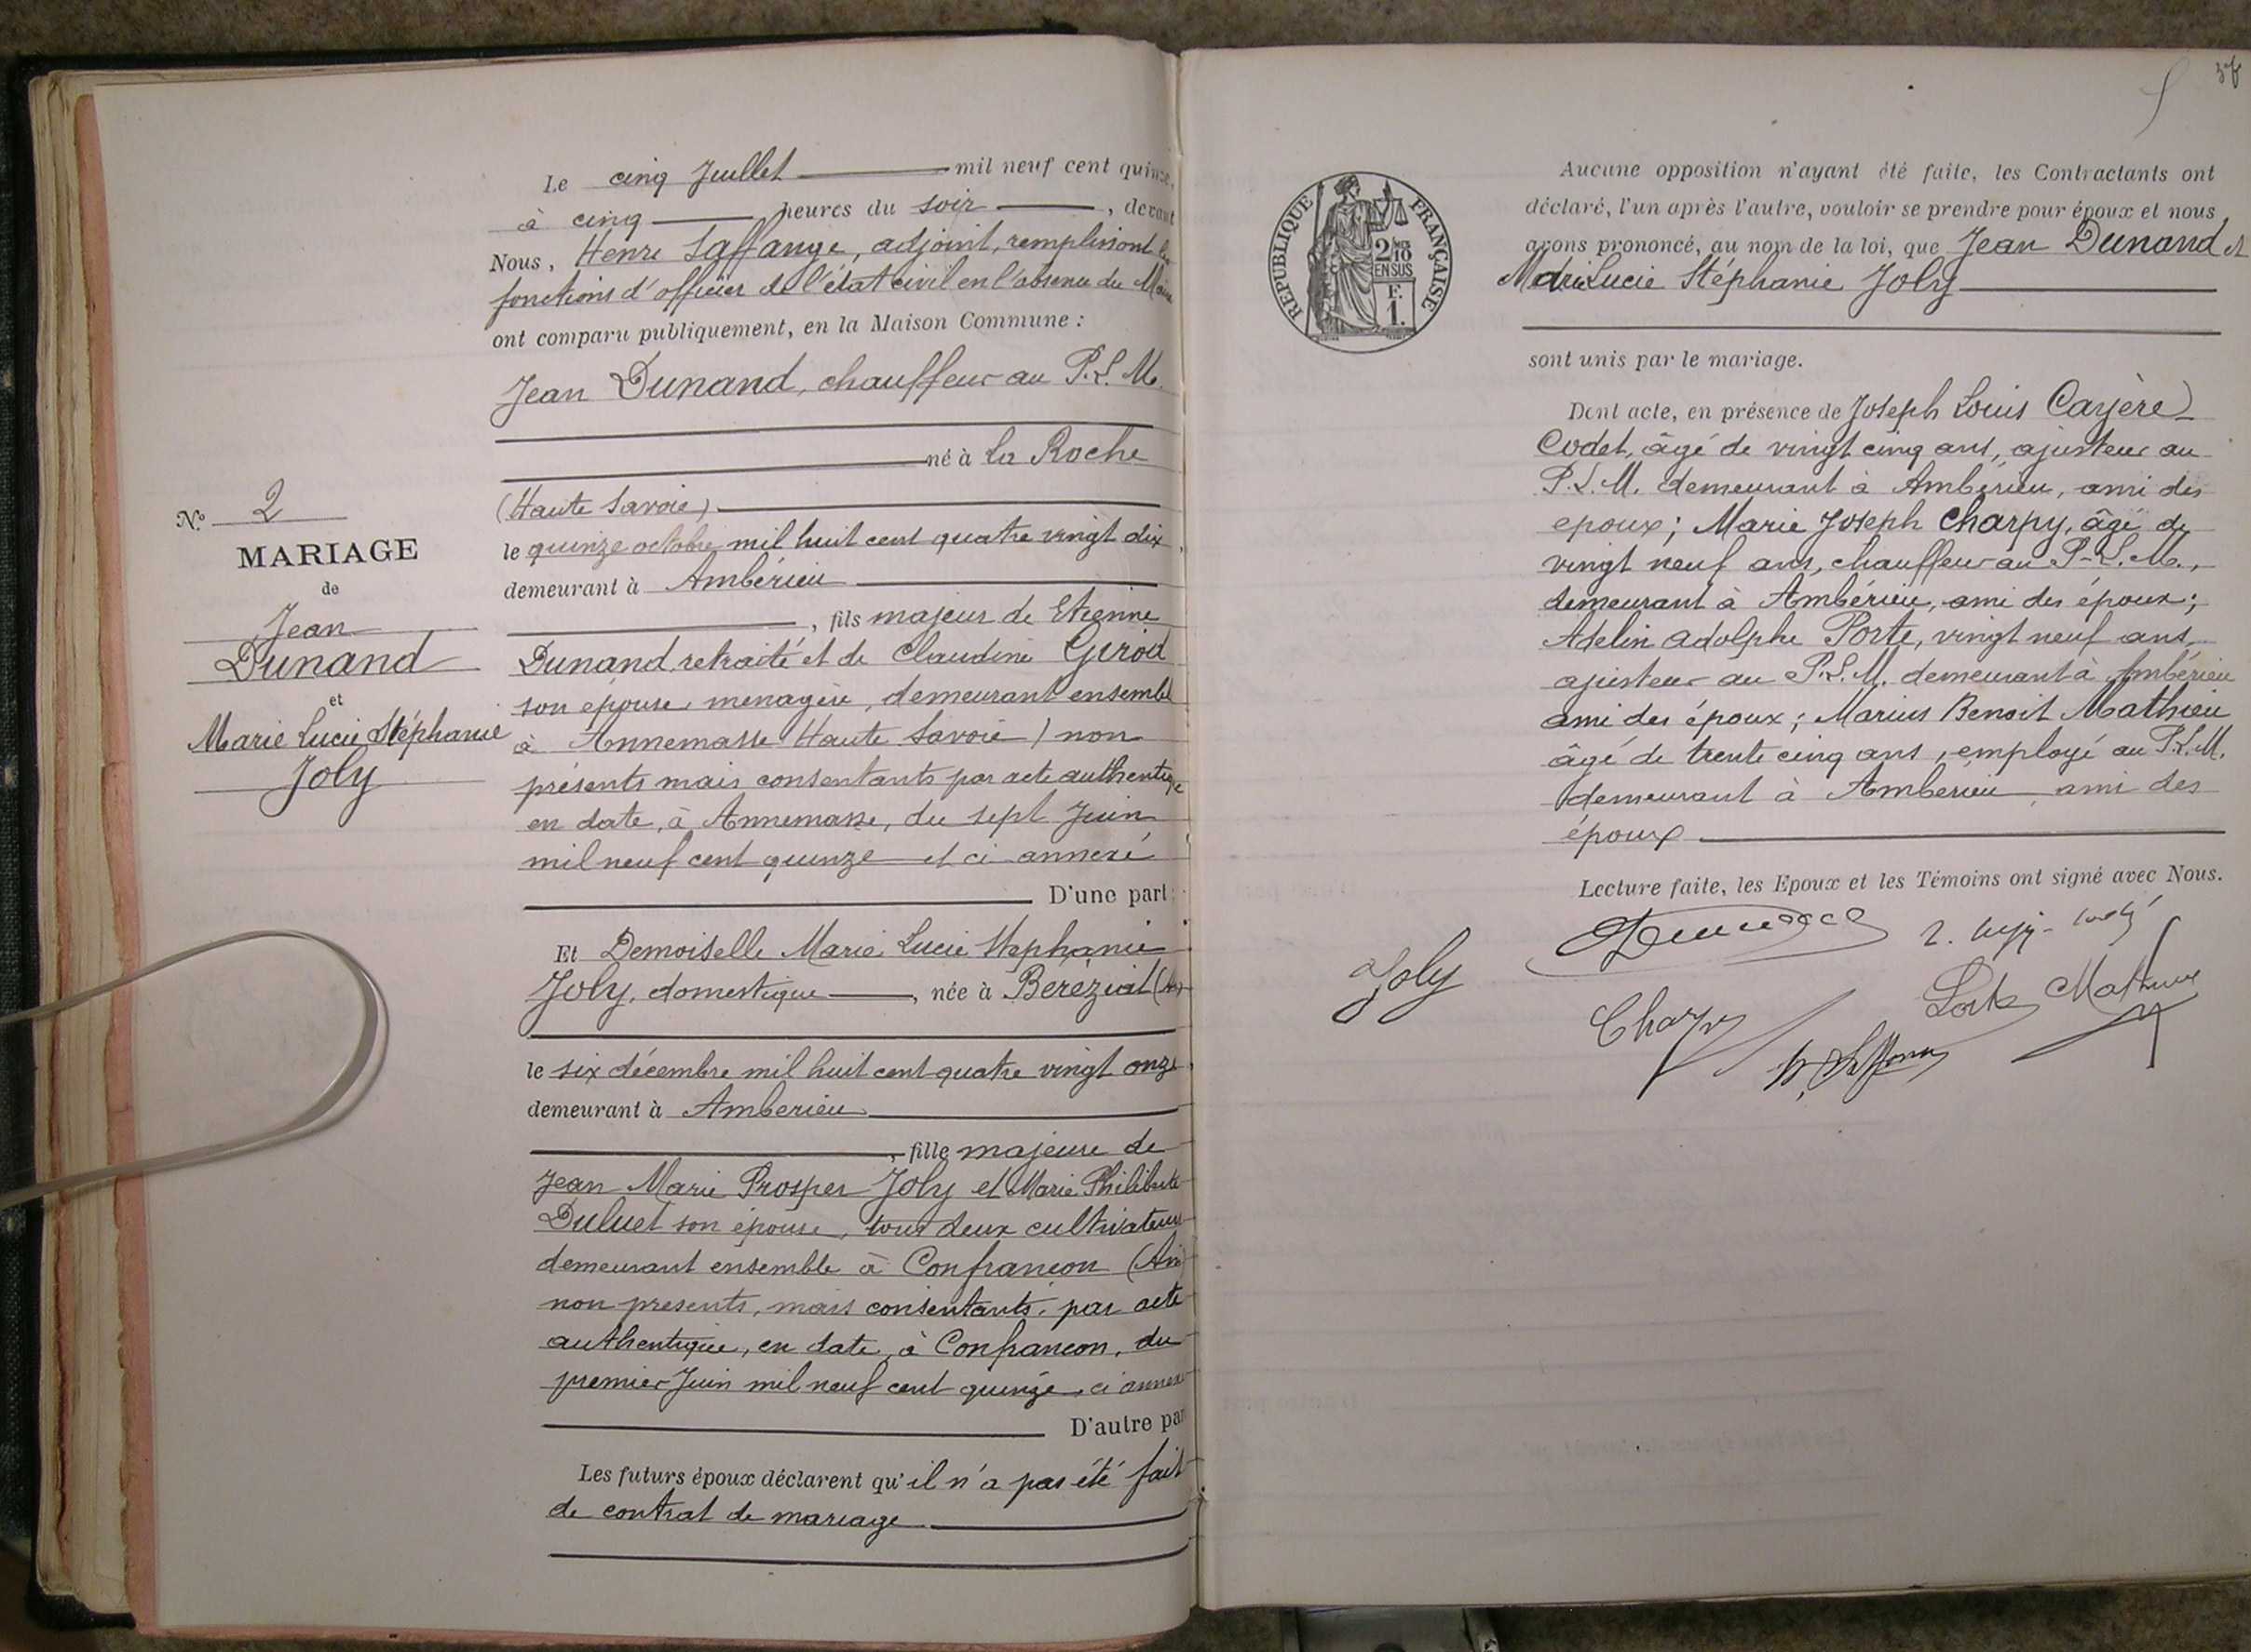 Le cinq Juillet mil neuf cent quinze,
à cinq heures du soir, devant
Nous, Henri Laffange, adjoint, remplissant les
fonctions d'officier de l'état civil en l'absence du Maire
ont comparu publiquement, en la Maison Commune :
Jean Dunand, chauffeur au P.L.M.
né à La Roche
(Haute Savoie)
le quinze octobre mil huit cent quatre vingt dix,
demeurant à Ambérieu
, fils majeur de Etienne
Dunand, retraité et de Claudine Girod
son épouse, ménagère, demeurant ensemble
à Annemasse Haute Savoie) non
présents mais consentants par acte authentique
en date, à Annemasse, du sept Juin
mil neuf cent quinze et ci annexé
D'une part ;
N.º 2
MARIAGE
de
Jean
Dunand
et
Marie Lucie Stéphanie
Joly
Et Demoiselle Marie Lucie Stéphanie
Joly, domestique, née à Béréziat (Ain)
le six décembre mil huit cent quatre vingt onze
demeurant à Amberieu
, fille majeure de
Jean Marie Prosper Joly et Marie Philiberte
Duluet son épouse, tous deux cultivateurs
demeurant ensemble à Confrancon (Ain)
non presents, mais consentants, par acte
authentique, en date, à Confrancon, du
premier Juin mil neuf cent quinze, ci annexé
D'autre par
Les futurs époux déclarent qu'il n'a pas été fait
de contrat de mariage
REPUBLIQUE FRANÇAISE
2/10
EN SUS
F.
1.
Aucune opposition n'ayant été faite, les Contractants ont
déclaré, l'un après l'autre, vouloir se prendre pour époux et nous
avons prononcé, au nom de la loi, que Jean Dunand et
Marie Lucie Stéphanie Joly
sont unis par le mariage.
Dont acte, en présence de Joseph Louis
Codet, âgé de vingt cinq ans, ajusteur au
P.L.M. demeurant à Ambérieu, ami des
epoux; Marie Joseph Charpy, âgé de
vingt neuf ans, chauffeur au P.L.M.,
demeurant à Ambérieu, ami des époux;
Adelin Adolphe Porte, vingt neuf ans,
ajusteur au P.L.M. demeurant à Ambérieu
ami des époux; Marius Benoit Mathieu
âgé de trente cinq ans, employé au P.L.M.
demeurant à Amberieu ami des
époux
Lecture faite, les Epoux et les Témoins ont signé avec Nous.
Joly
Charpy
Porte Mathieu